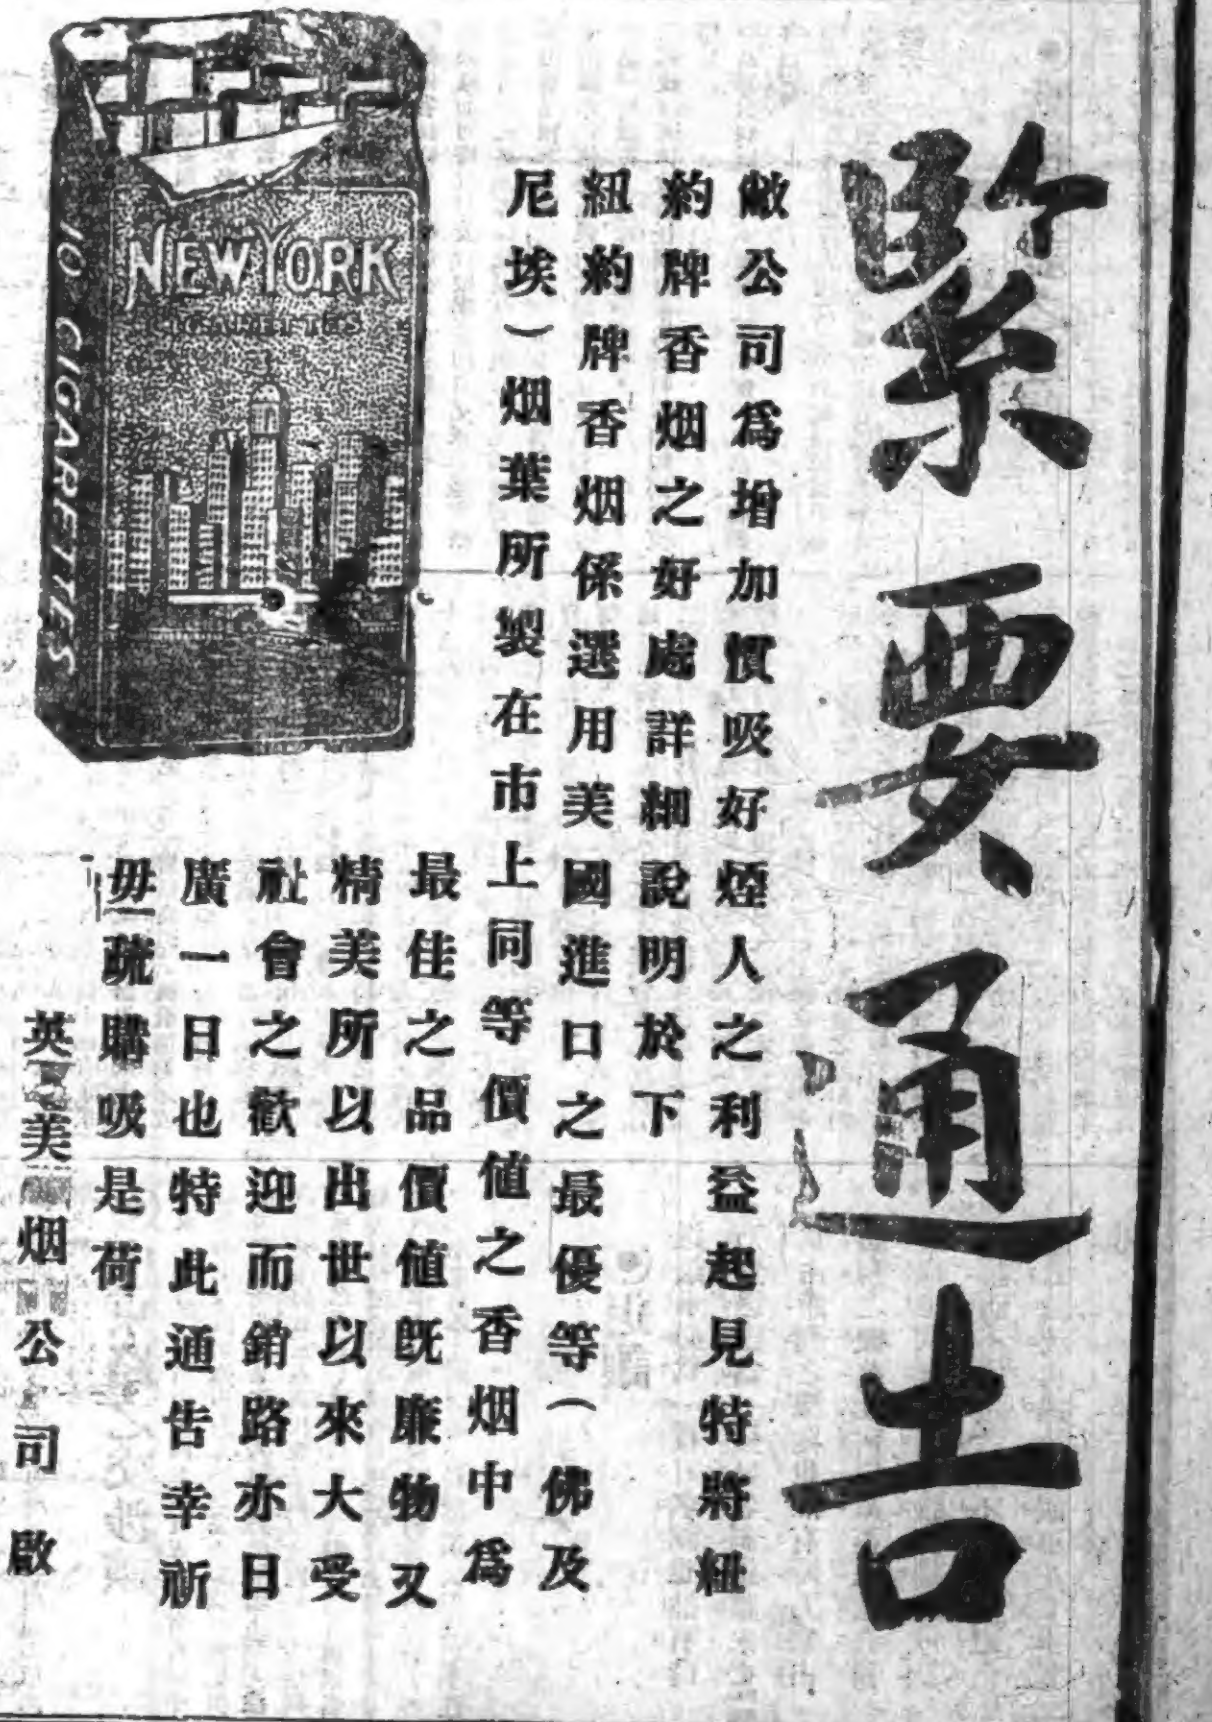 緊要通告
敝公司爲增加慣吸好煙人之利益起見特將紐
約牌香烟之好處詳細說明於下
紐約牌香烟係選用美國進口之最優等（佛及
尼埃）烟葉所製在市上同等價値之香烟中爲
最佳之品價値旣廉物又
精美所以出世以來大受
社會之歡迎而銷路亦日
廣一日也特此通告幸祈
毋疏購吸是荷
英美烟公司啟
NEW YORK
CIGARETTES
10 CIGARETTES